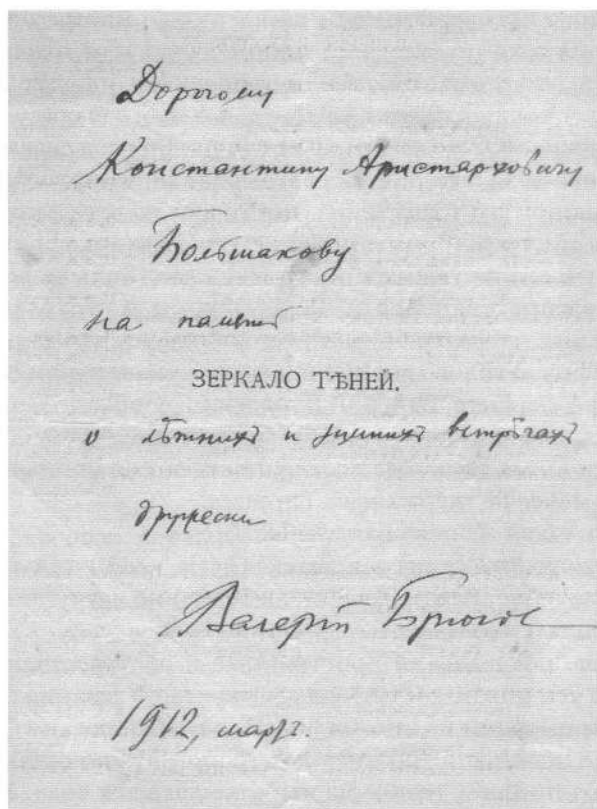 Дорогому
Константину Аристарховичу
Большакову
на память
ЗЕРКАЛО ТѢНЕЙ.
о лѣтнихъ и зимнихъ встрѣчахъ
дружески
Валерій Брюсов
1912, мартъ.